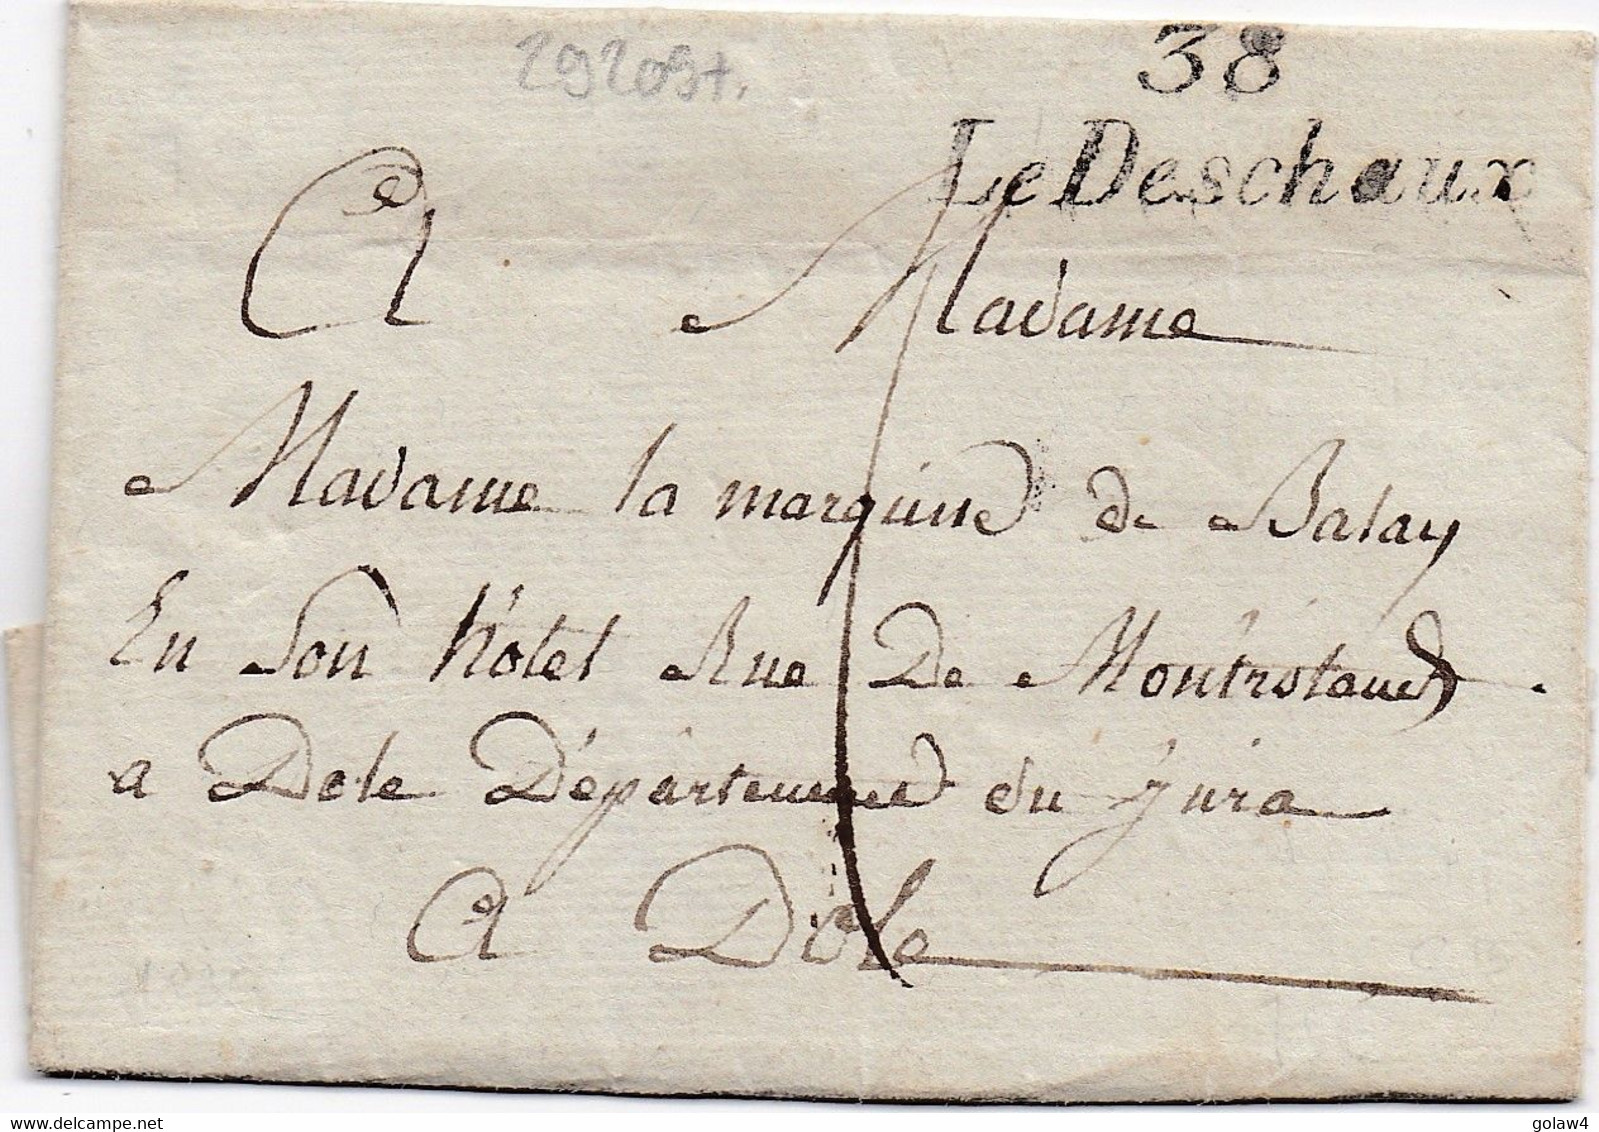 29209t.
38
Le Deschaux
A Madame
Madame la marquise de Balay
En son hôtel Rue De Montroland
a Dole Département du Jura
A Dole
www.delcampe.net
golaw4